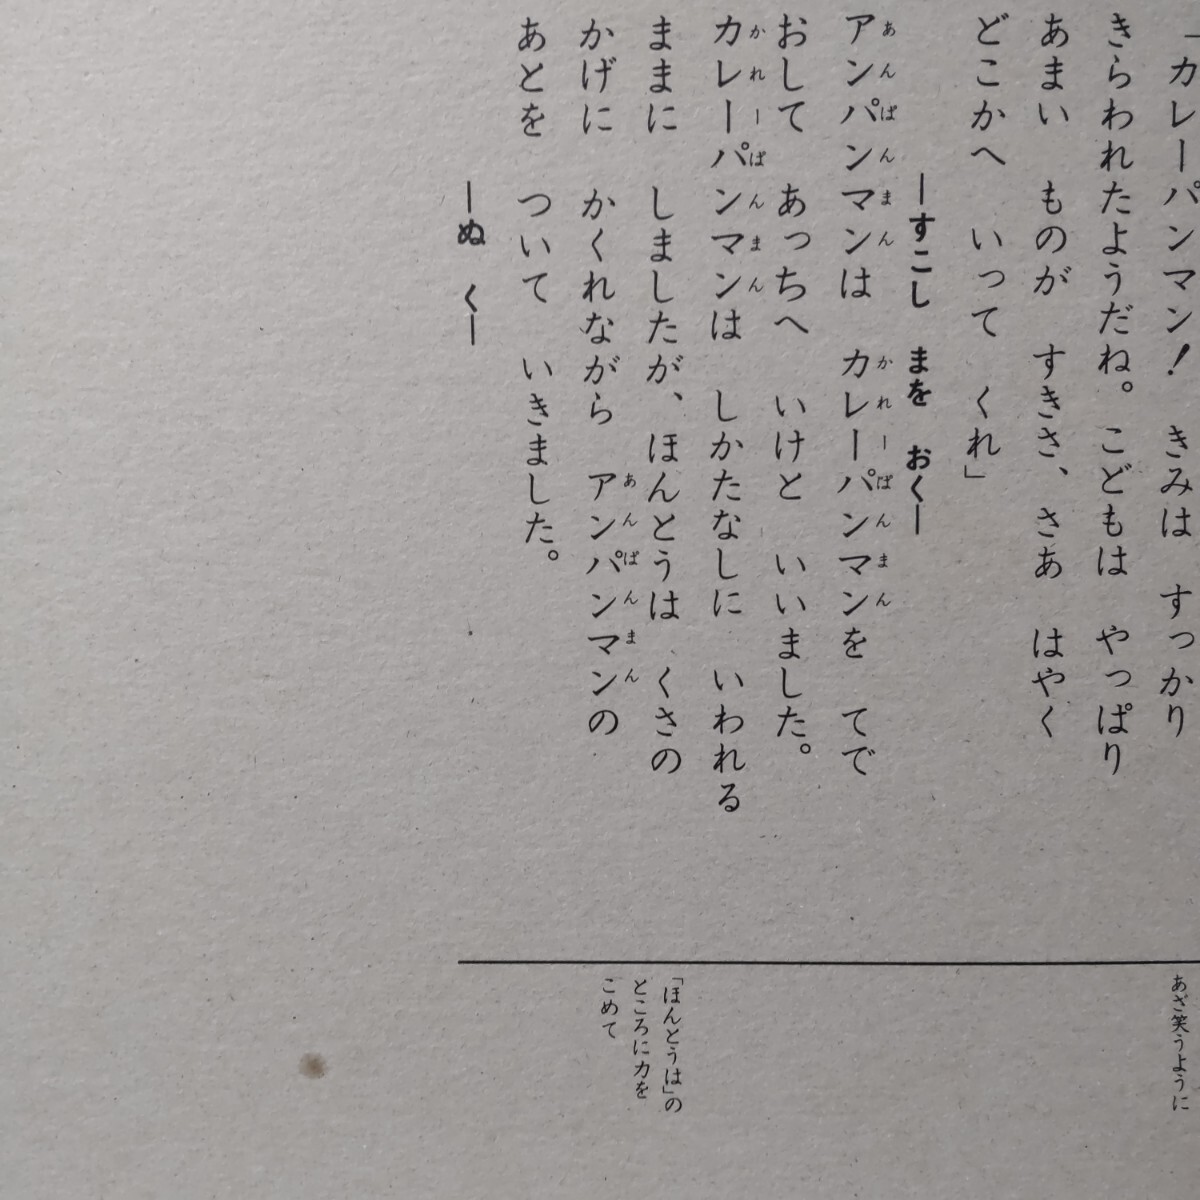 「カレーパンマン！　きみは　すっかり
きらわれたようだね。こどもは　やっぱり
あまい　ものが　すきさ、さあ　はやく
どこかへ　いって　くれ」
―すこし　まを　おく―
アンパンマンは　カレーパンマンを　てで
あんぱんまん　かれーぱんまん
おして　あっちへ　いけと　いいました。
カレーパンマンは　しかたなしに　いわれる
かれーぱんまん
ままに　しましたが、ほんとうは　くさの
かげに　かくれながら　アンパンマンの
あんぱんまん
あとを　ついて　いきました。
―ぬ　く―
あざ笑うように
「ほんとうは」の
ところに力を
こめて